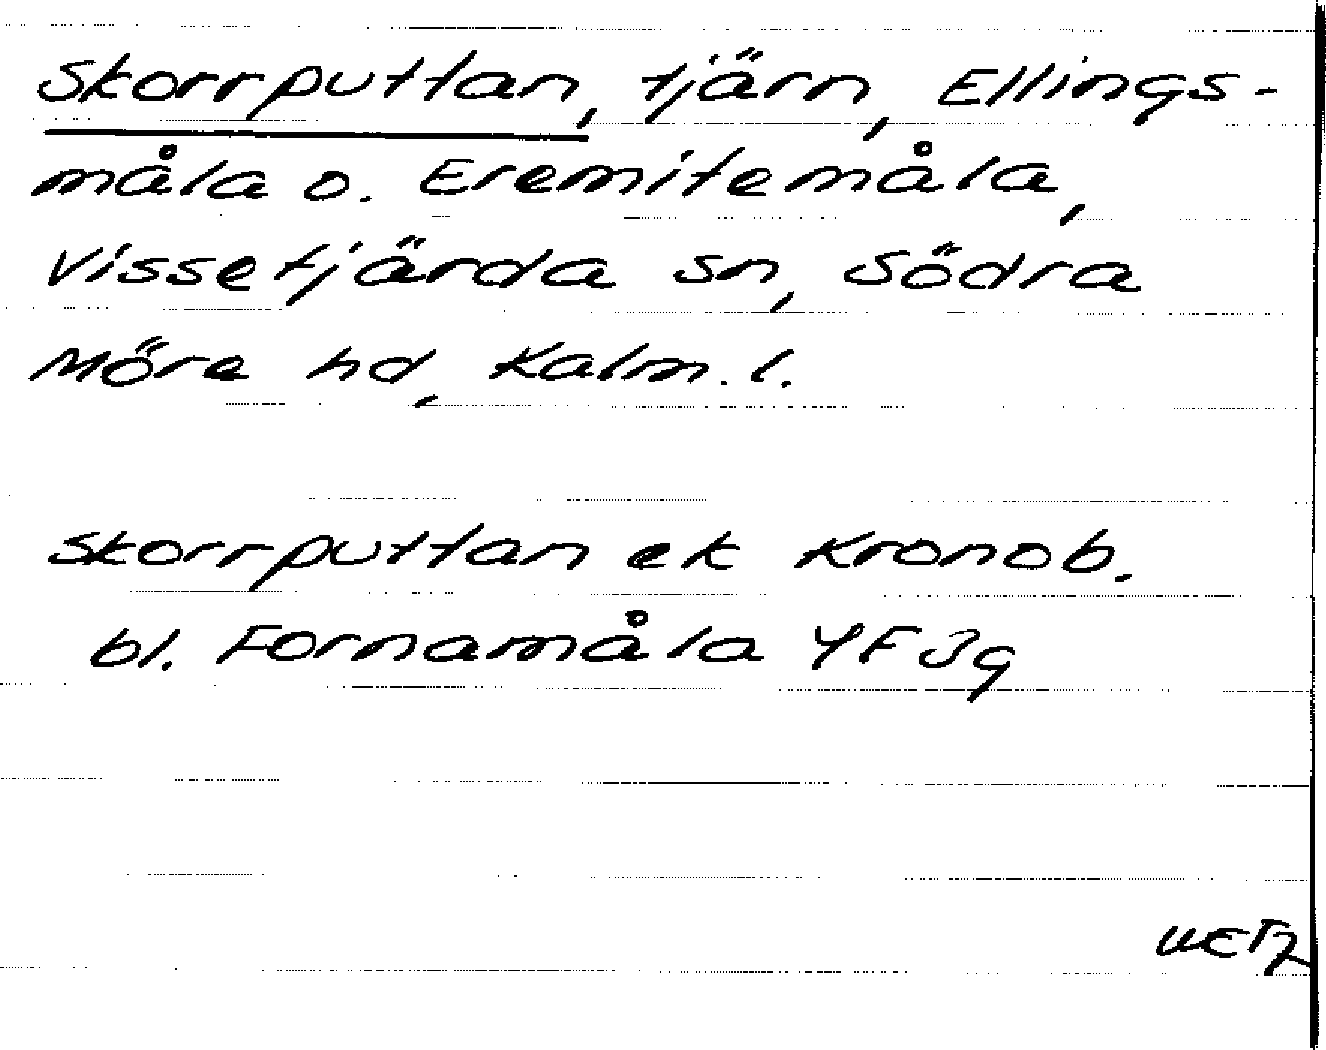 Skorrputtan, tjärn, Ellings-
måla o. Eremitemåla,
Vissefjärda sn, Södra
Möre hd, Kalm. l.
Skorrputtan ek Kronob.
bl. Fornamåla 4F3g